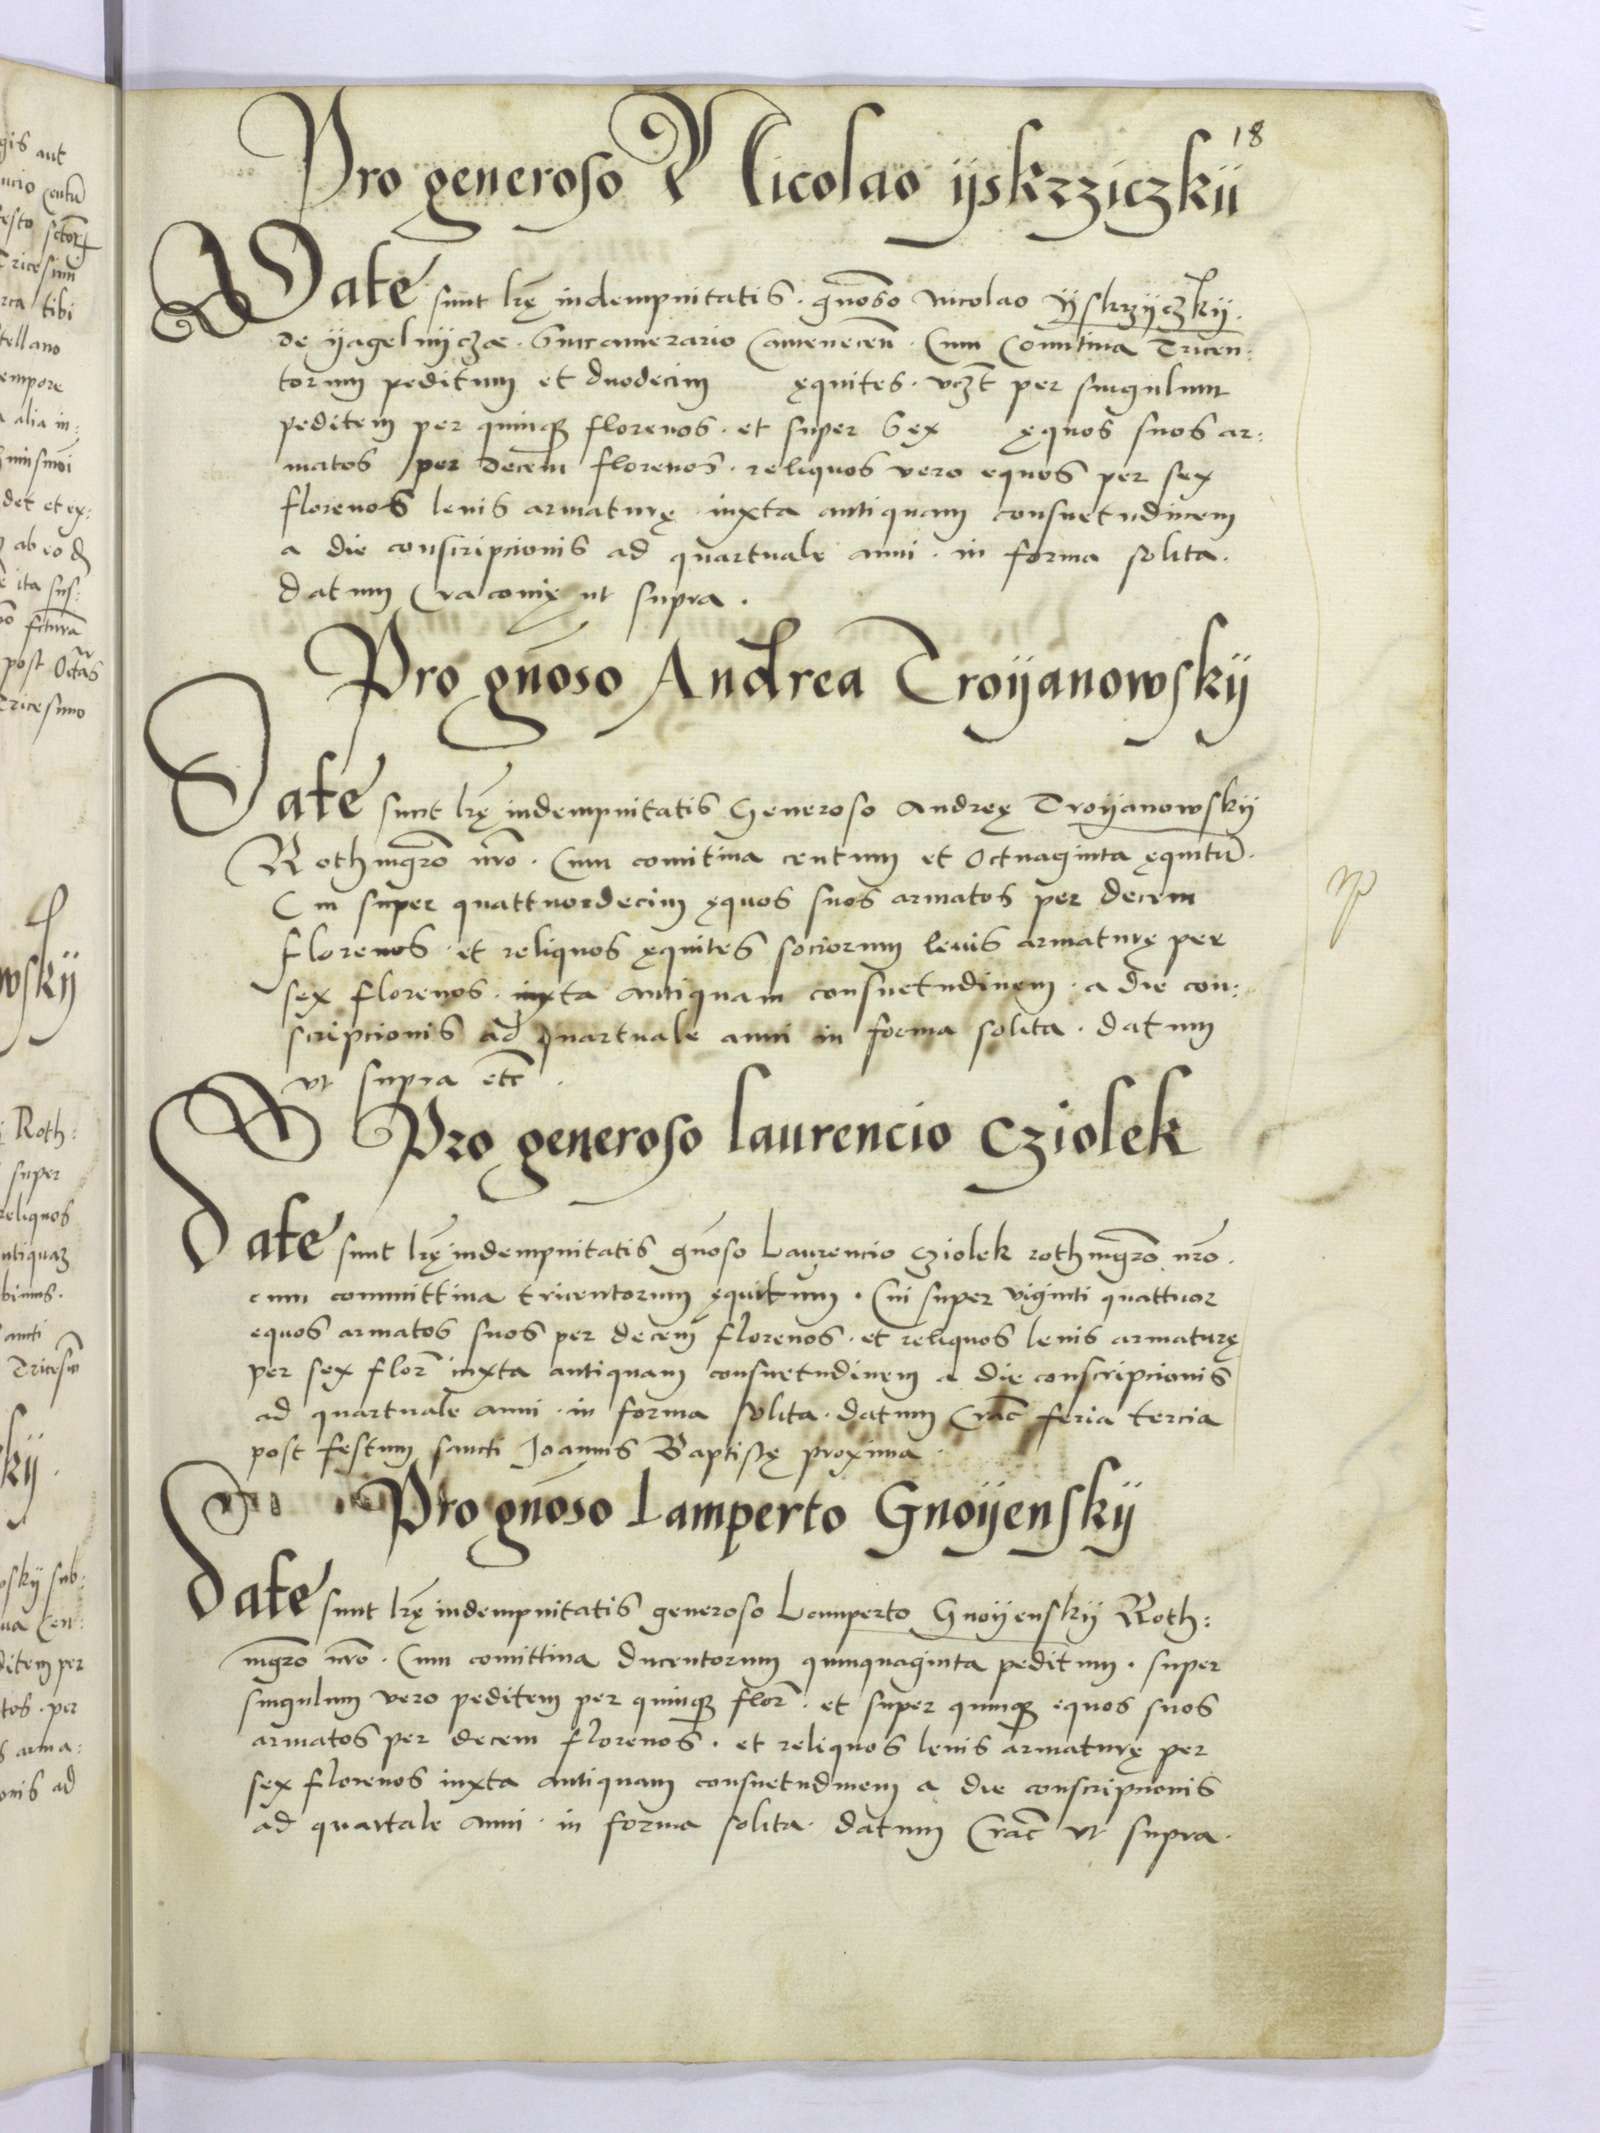 18
Pro generoso Nicolao ijskrziczkij
Date sunt lrę indempnitatis . gnoso Nicolao ijskrzyczkij .
de ijagelnijcza . Succamerario Camenecen . Cum Comitiua Tricen:
torum peditum et duodecim ęquites . vczt per singulum
peditem per quinque florenos . et super Sex ęquos suos ar:
matos per decem florenos . reliquos vero equos per sex
florenos leuis armaturę iuxta antiquam consuetudinem
a die conscripcionis ad quartuale anni . in forma solita .
datum Cracouię ut supra .
Pro gnoso Andrea Troijanowskij
Date sunt lrę indempnitatis Generoso Andreę Troijanowskij
Rothmgro nro . Cum comitiua centum et Octuaginta ęquitu .
Cui super quattuordecim ęquos suos armatos per decem
florenos . et reliquos ęquites sociorum leuis armaturę per
sex florenos . iuxta antiquam consuetudinem . a die con:
scripcionis ad Quartuale anni in forma solita . datum
vt supra etc .
Pro generoso laurencio Cziolek
Date sunt lrę indempnitatis gnoso Laurencio Cziolek rothmgro nro .
cum committiua tricentorum ęquitum . Cui super viginti quattuor
equos armatos suos per decem florenos . et reliquos leuis armaturę
per sex flor iuxta antiquam consuetudinem a die conscripcionis
ad quartuale anni . in forma solita . datum Crac feria tercia
post festum sancti Joannis Baptistę proxima .
Pro gnoso Lamperto Gnoijenskij
Date sunt lrę indempnitatis generoso Lamperto Gnoijenskij Roth:
mgro nro . Cum comittiua ducentorum quinquaginta peditum . super
singulum vero peditem per quinque flor . et super quinque equos suos
armatos per decem florenos . et reliquos leuis armaturę per
sex florenos iuxta antiquam consuetudinem a die conscripcionis
ad quartale anni . in forma solita . datum Crac vt supra .